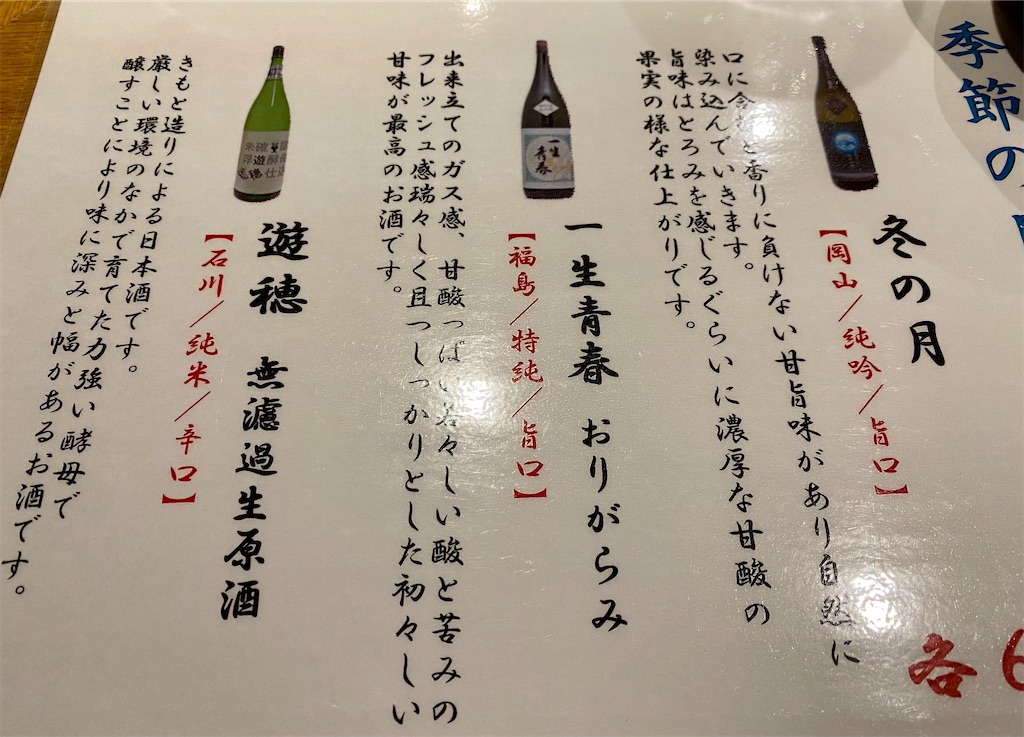 季節の
冬の月
【岡山／純吟／旨口】
口に含むと香りに負けない甘旨味があり自然に
染み込んでいきます。
旨味はとろみを感じるぐらいに濃厚な甘酸の
果実の様な仕上がりです。
一生青春 おりがらみ
【福島／特純／旨口】
出来立てのガス感、甘酸っぱい若々しい酸と苦みの
フレッシュ感瑞々しく且つしっかりとした初々しい
甘味が最高のお酒です。
一生
青春
遊穂 無濾過生原酒
【石川／純米／辛口】
きもと造りによる日本酒です。
厳しい環境のなかで育てた力強い酵母で
醸すことにより味に深みと幅があるお酒です。
遊穂
各6